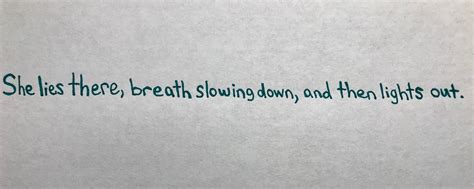 She lies there, breath slowing down, and then lights out.